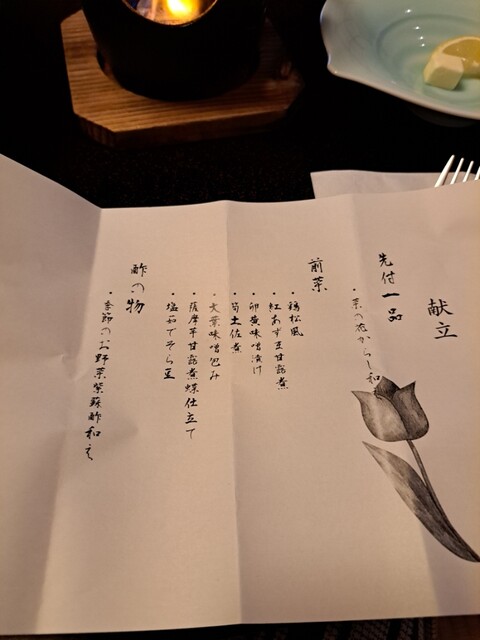 献立
先付一品
・菜の花からし和
前菜
・鶏松風
・紅あずま甘露煮
・卵黄味噌漬け
・筍土佐煮
・大葉味噌包み
・薩摩芋甘露煮蝶仕立て
・塩茹でそら豆
酢の物
・季節のお野菜紫蘇酢和え